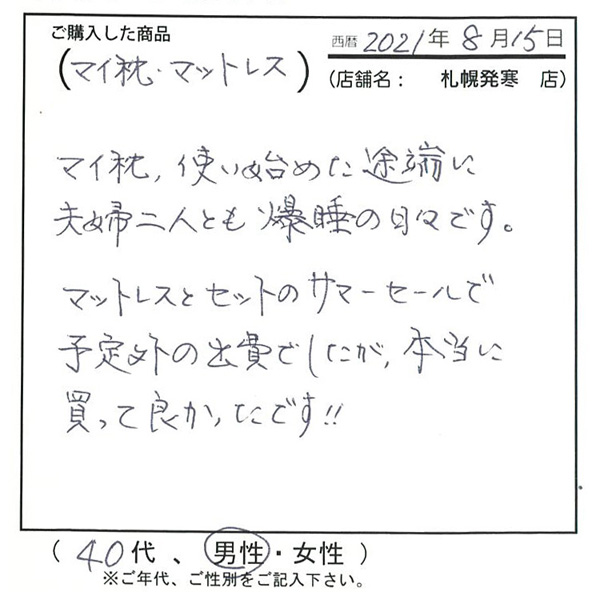 ご購入した商品
(マイ枕・マットレス)
西暦 2021年 8月15日
(店舗名: 札幌発寒 店)
マイ枕,使い始めた途端に
夫婦二人とも爆睡の日々です。
マットレスとセットのサマーセールで
予定外の出費でしたが,本当に
買って良かったです!!
(40代、男性・女性)
※ご年代、ご性別をご記入下さい。